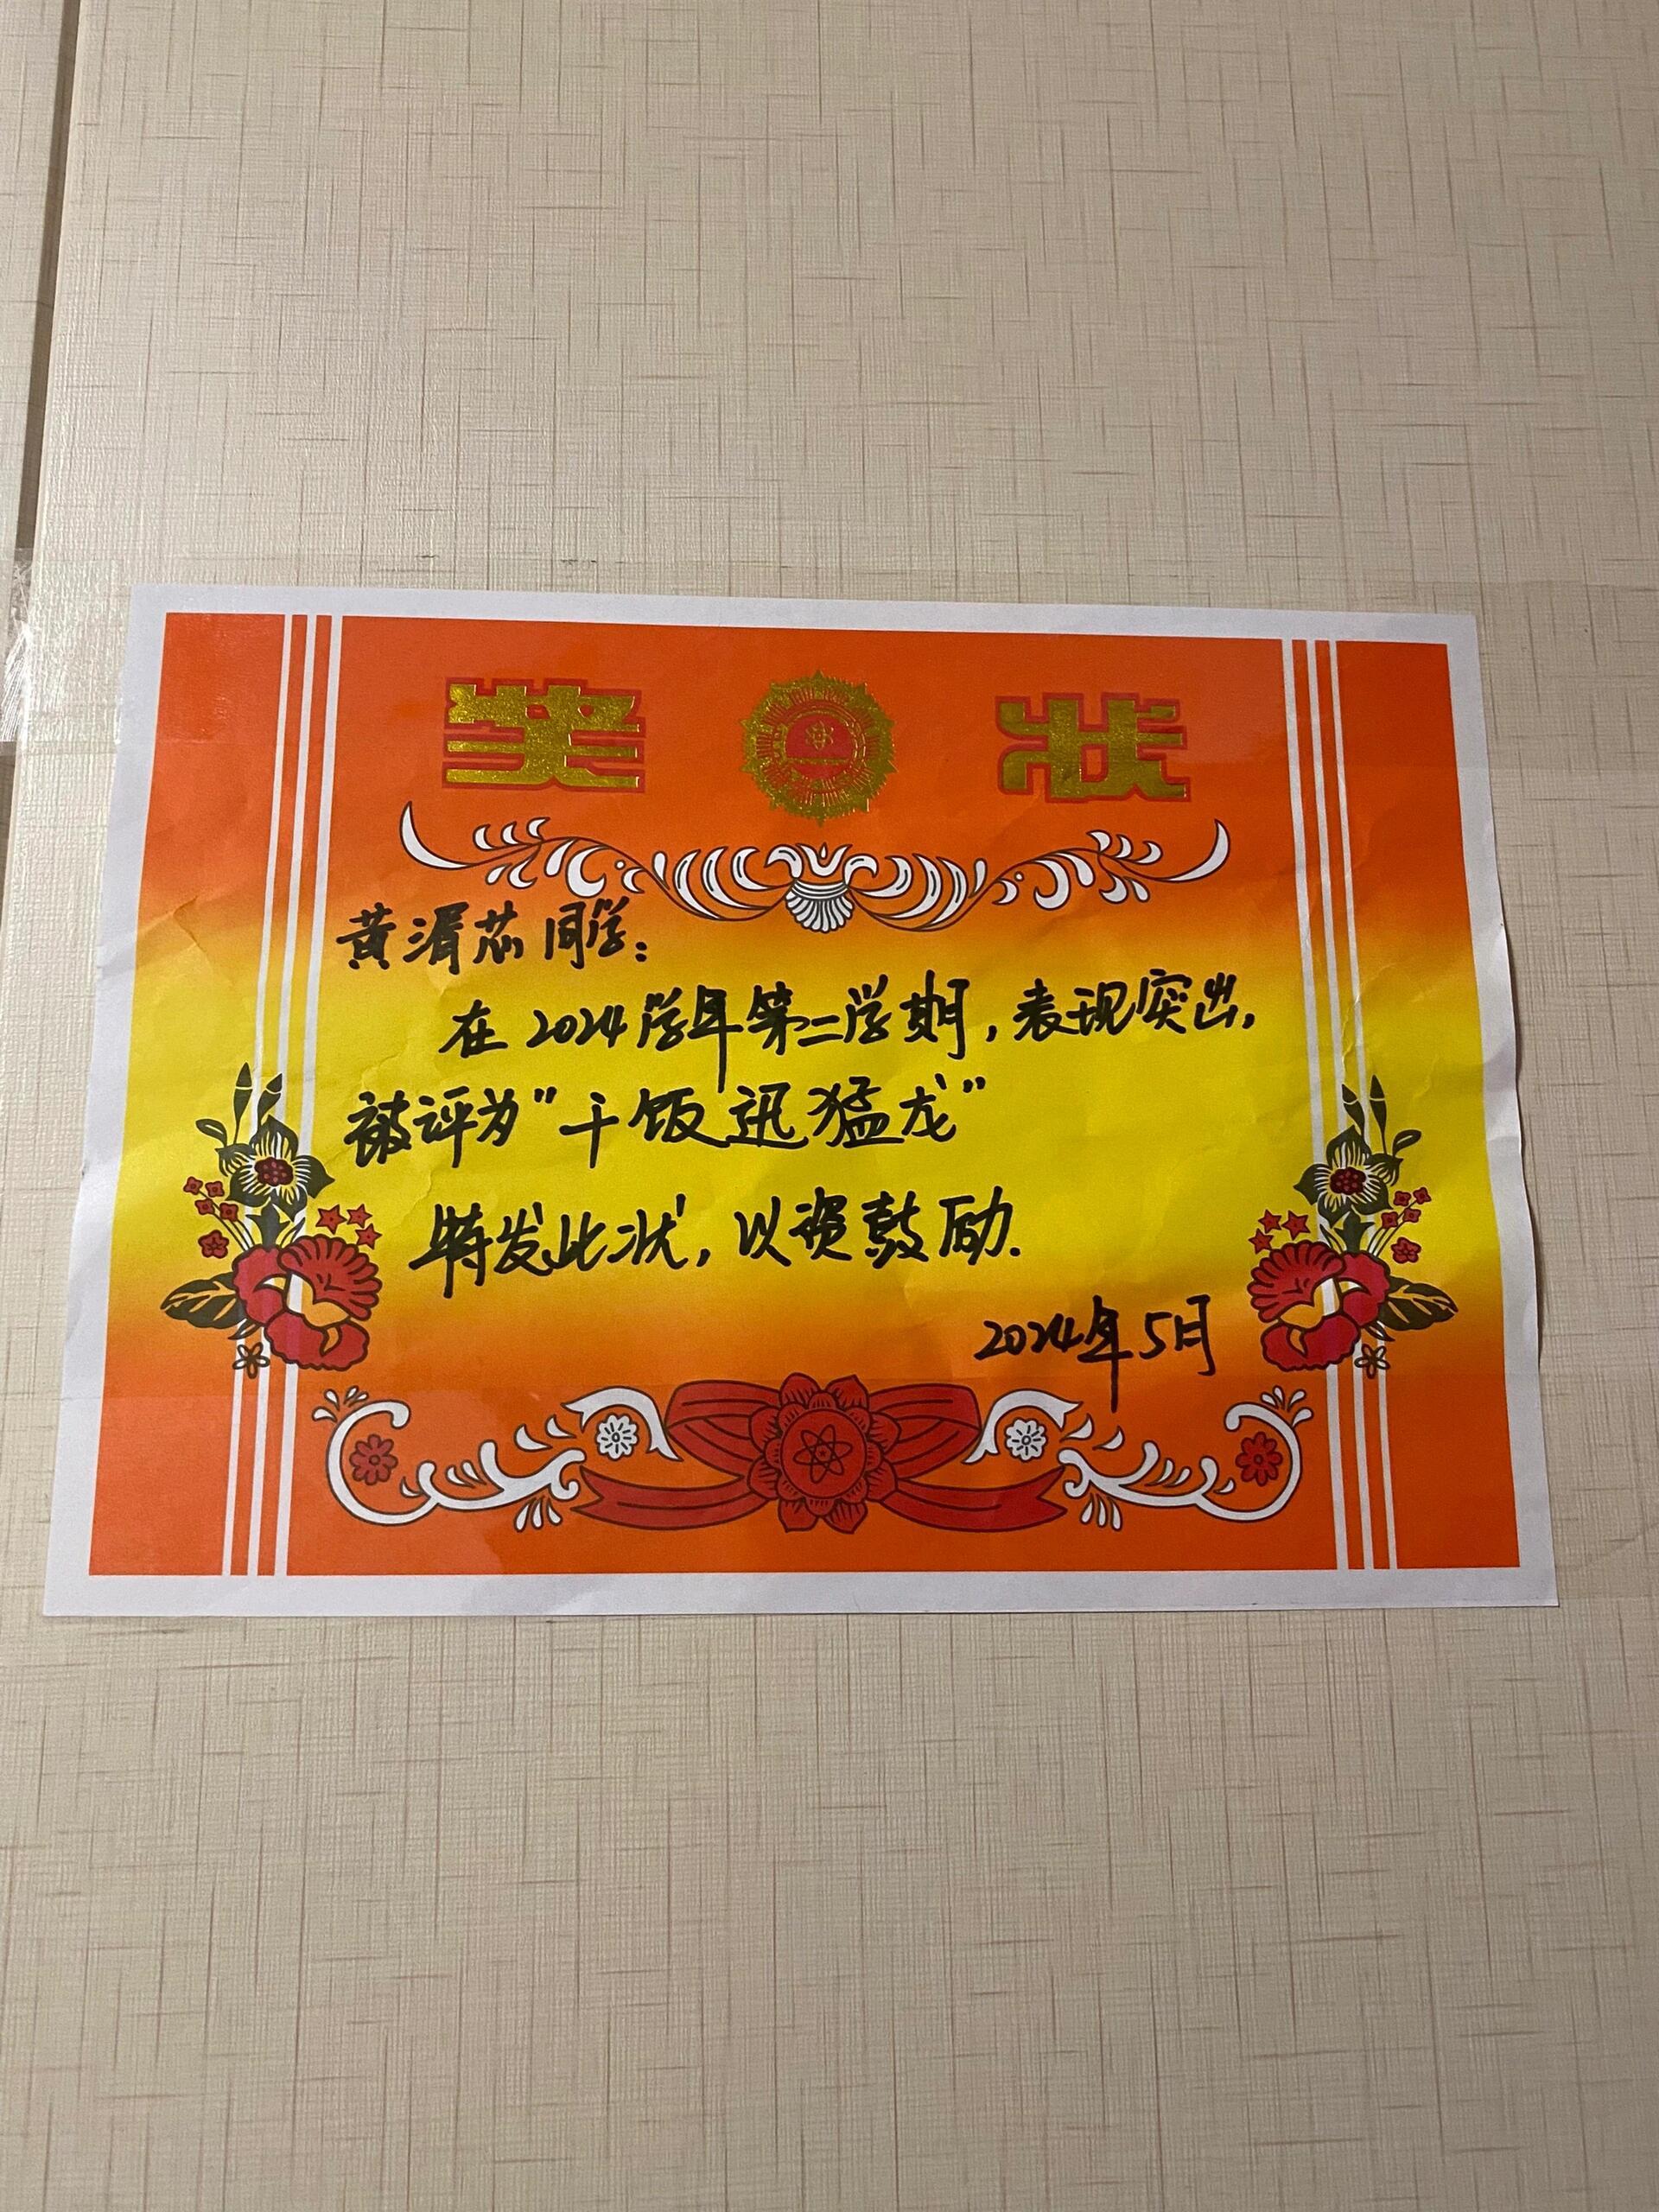 奖状
黄湄芯同学：
在2024学年第二学期，表现突出，
被评为"干饭迅猛龙"
特发此状，以资鼓励.
2024年5月